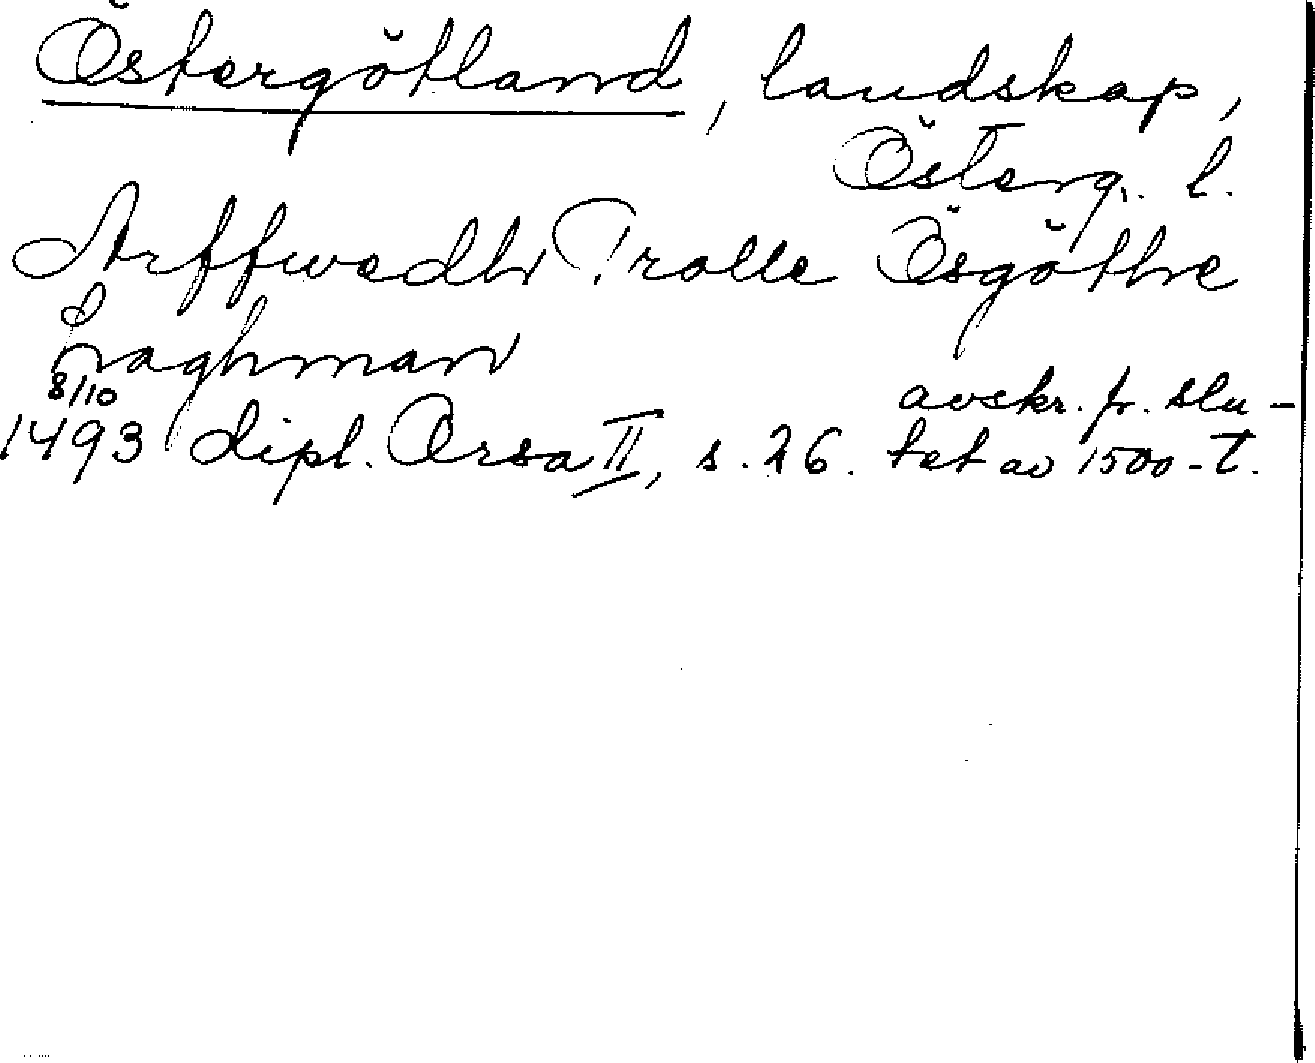 Östergötland, landskap,
Österg. l.
Arffwedh Trolle Ösgöthe
Laghman
8/10 avskr. fr. slu-
1493 dipl. Orsa II, s. 26. tet av 1500-t.